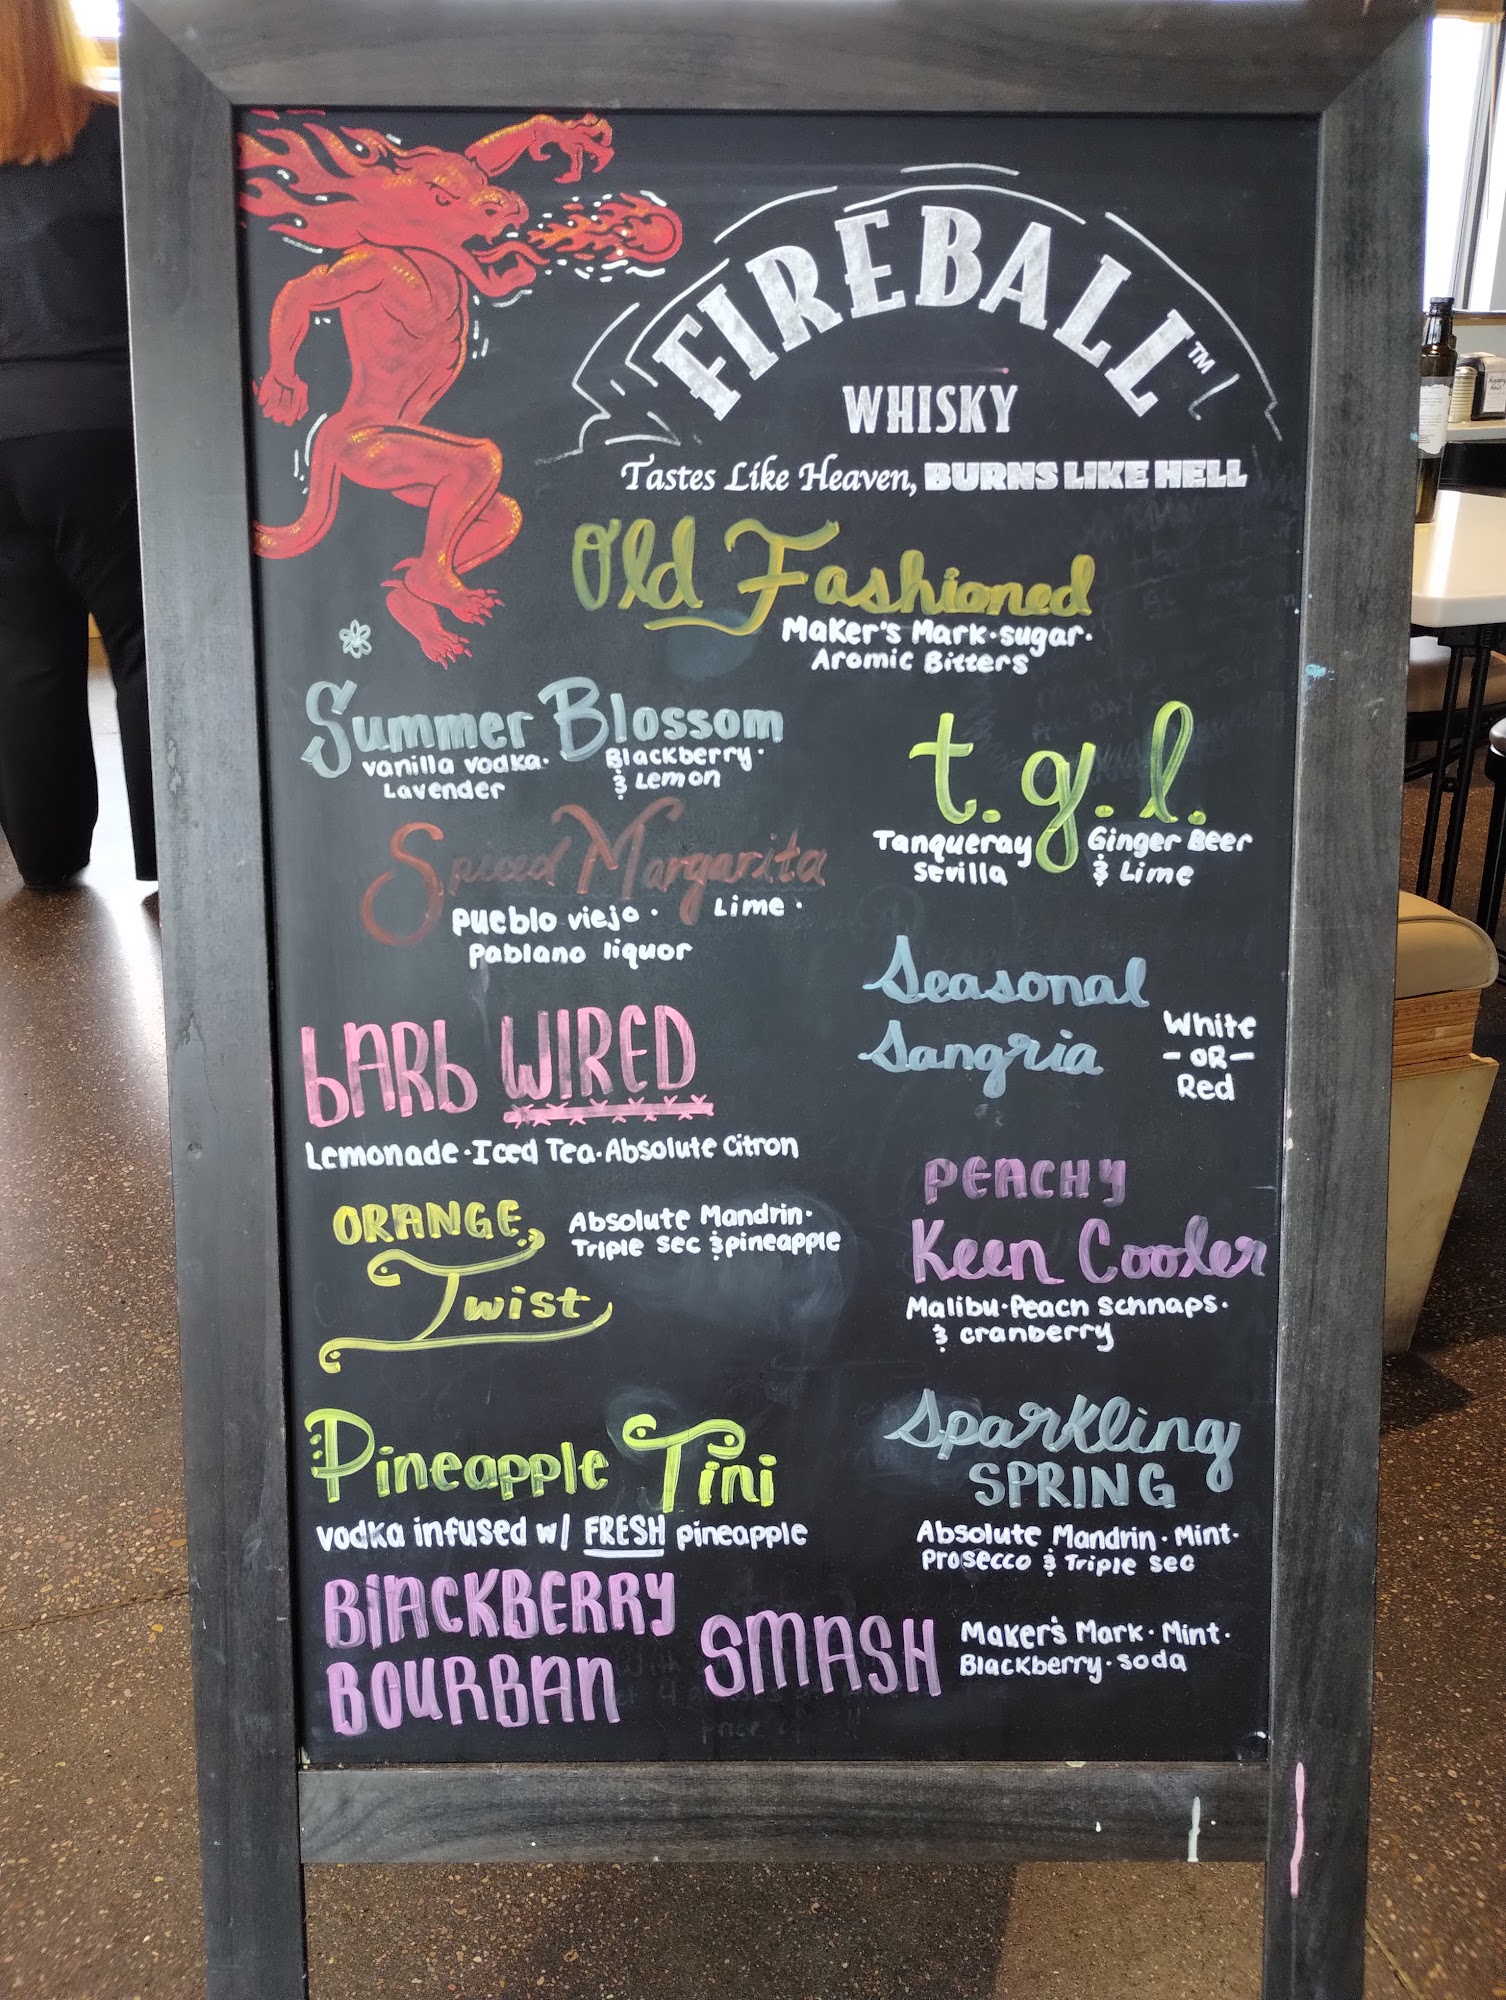 FIREBALL™
WHISKY
Tastes Like Heaven, BURNS LIKE HELL
Old Fashioned
Maker's Mark · sugar ·
Aromic Bitters
Summer Blossom
vanilla vodka · Blackberry ·
Lavender & Lemon
t.g.l.
Tanqueray Ginger Beer
Sevilla & Lime
Spiced Margarita
pueblo viejo · Lime ·
pablano liquor
Seasonal
Sangria
White
- OR -
Red
bARb WIRED
Lemonade · Iced Tea · Absolute Citron
ORANGE
Twist
Absolute Mandrin ·
Triple sec & pineapple
PEACHY
Keen Cooler
Malibu · Peach Schnaps ·
& cranberry
Pineapple Tini
vodka infused w/ FRESH pineapple
Sparkling
SPRING
Absolute Mandrin · Mint ·
Prosecco & Triple sec
BlACKBERRY
BOURBAN SMASH
Maker's Mark · Mint ·
Blackberry · soda